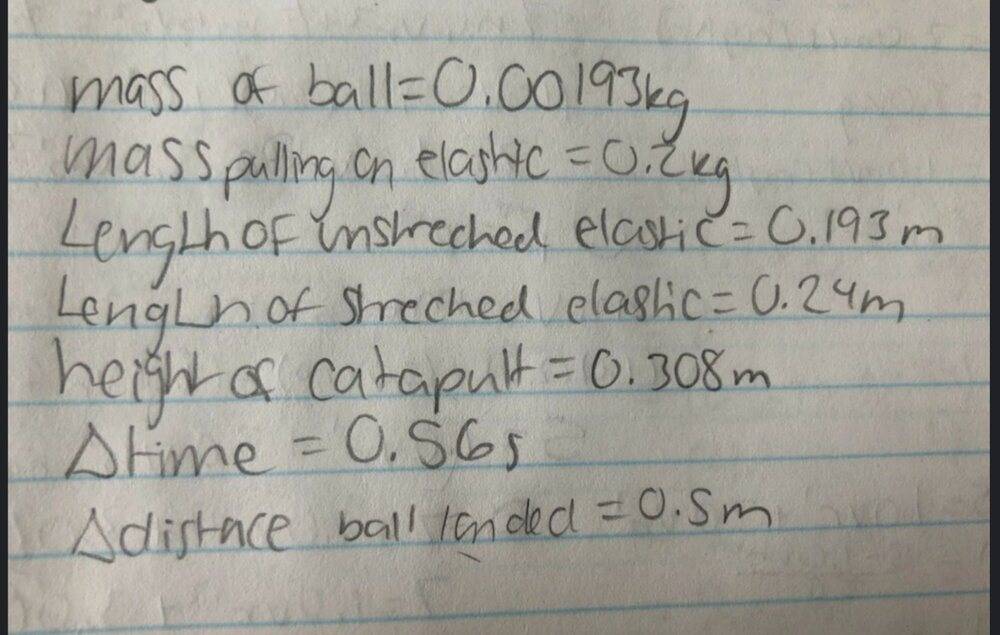 mass of ball=0.00193kg
mass pulling on elastic =0.2kg
Length of unstreched elastic=0.193m
Length of streched elastic=0.24m
height of catapult=0.308m
Δtime =0.56s
Δdistace ball landed =0.5m